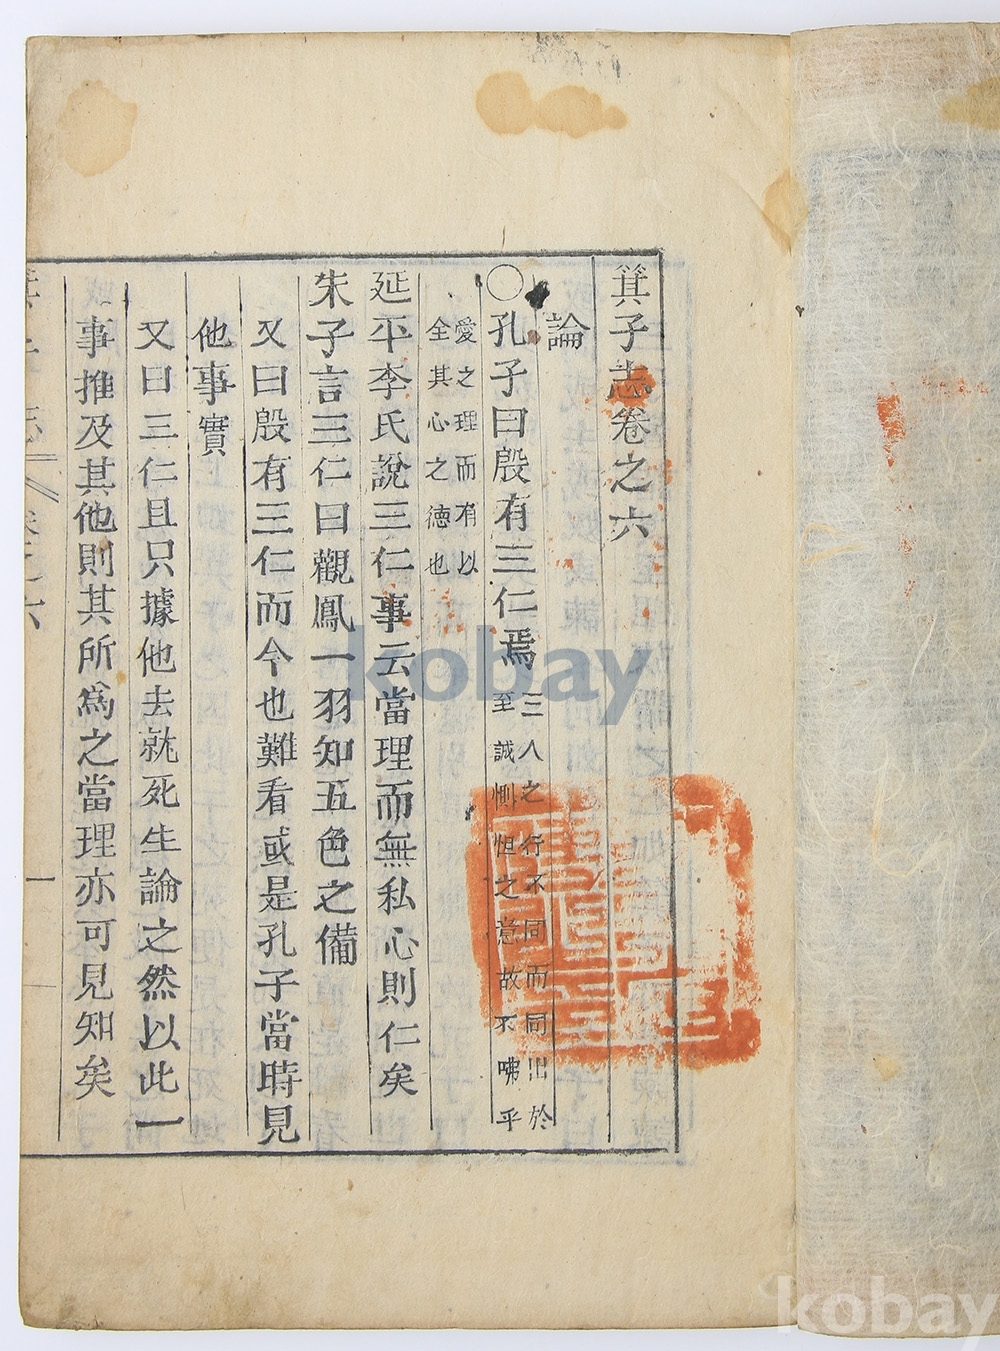 箕子志卷之六
論
○孔子曰殷有三仁焉 三人之行不同而同出於至誠惻怛之意故不咈乎
愛之理而有以全其心之德也
延平李氏說三仁事云當理而無私心則仁矣
朱子言三仁曰觀鳳一羽知五色之備
又曰殷有三仁而今也難看或是孔子當時見
他事實
又曰三仁且只據他去就死生論之然以此一
事推及其他則其所爲之當理亦可見知矣
一
kobay
kobay